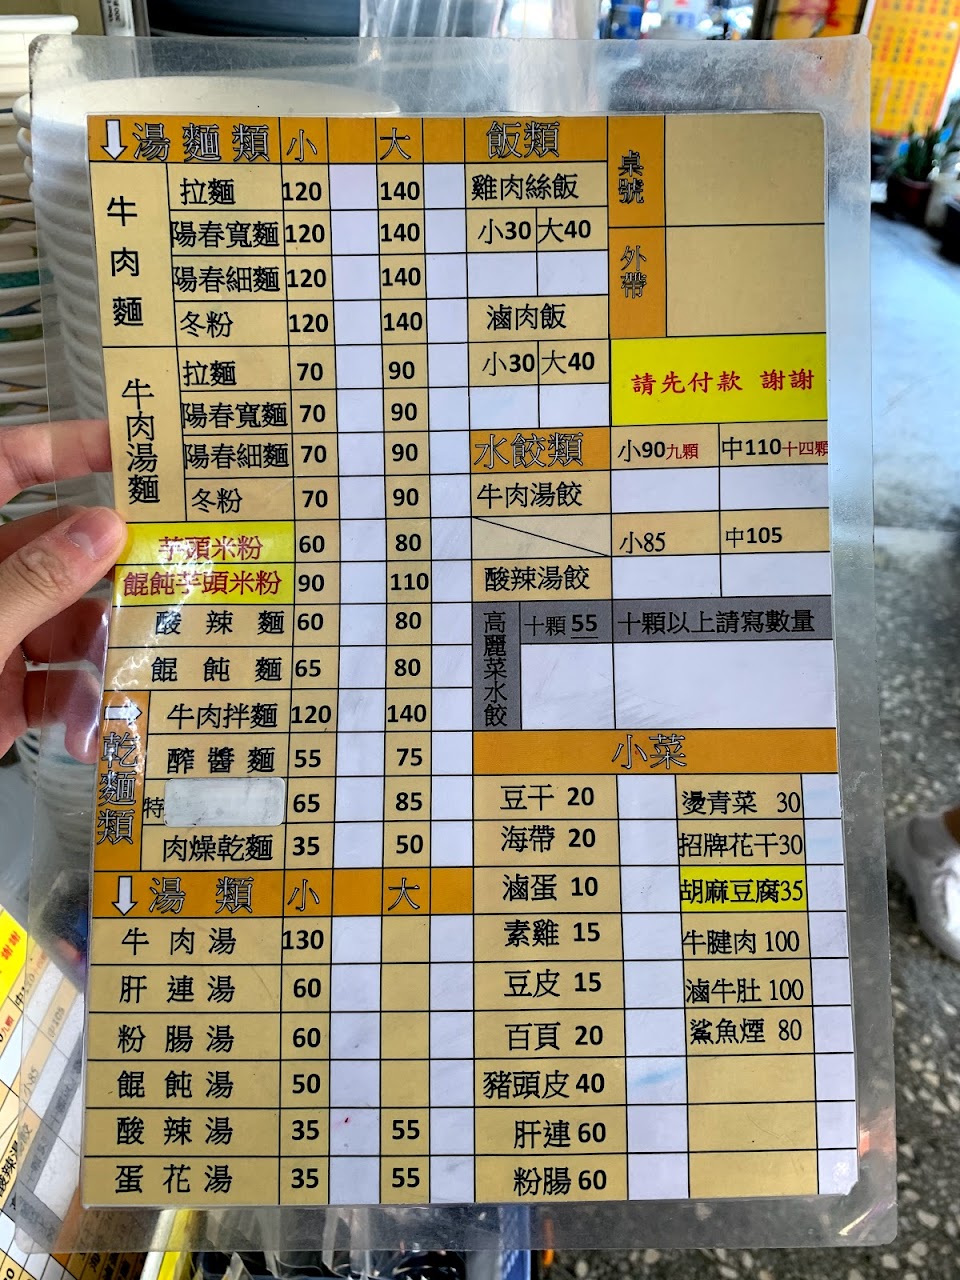 湯麵類 小 大
牛肉麵
拉麵 120 140
陽春寬麵 120 140
陽春細麵 120 140
冬粉 120 140
牛肉湯麵
拉麵 70 90
陽春寬麵 70 90
陽春細麵 70 90
冬粉 70 90
芋頭米粉 60 80
餛飩芋頭米粉 90 110
酸辣麵 60 80
餛飩麵 65 80
乾麵類
牛肉拌麵 120 140
醡醬麵 55 75
特 65 85
肉燥乾麵 35 50
湯類 小 大
牛肉湯 130
肝連湯 60
粉腸湯 60
餛飩湯 50
酸辣湯 35 55
蛋花湯 35 55
飯類
雞肉絲飯
小30 大40
滷肉飯
小30 大40
桌號
外帶
請先付款 謝謝
水餃類 小90九顆 中110十四顆
牛肉湯餃
小85 中105
酸辣湯餃
高麗菜水餃
十顆 55 十顆以上請寫數量
小菜
豆干 20 燙青菜 30
海帶 20 招牌花干30
滷蛋 10 胡麻豆腐35
素雞 15 牛腱肉 100
豆皮 15 滷牛肚 100
百頁 20 鯊魚煙 80
豬頭皮 40
肝連 60
粉腸 60